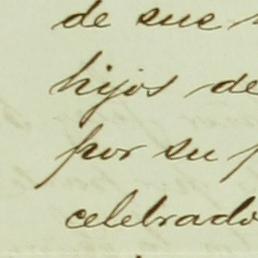 de sus
hijos de
por su
celebrado